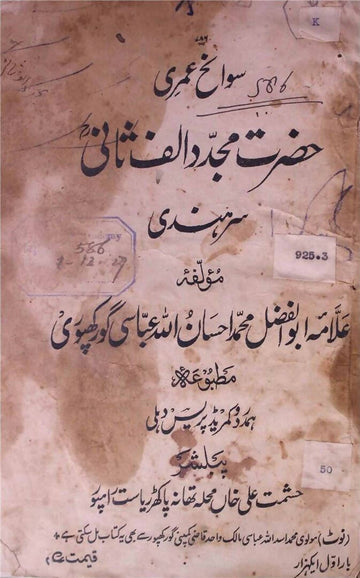 K
۷۸۶
سوانح عمری
586
حضرت مجدد الف ثانی
سرہندی
586
925.3
مؤلفۂ
علامہ ابوالفضل محمد احسان اللہ عباسی گورکھپوری
مطبوعہ
ہمدرد کمریڈ پریس دہلی
پبلشر
50
حشمت علی خاں محلہ تھانہ پاکھڑ ریاست رامپور
(نوٹ) مولوی محمد اسد اللہ عباسی مالک واحد قاضی کمپنی گورکھپور سے بھی یہ کتاب مل سکتی ہے
بار اول ایکہزار
قیمت